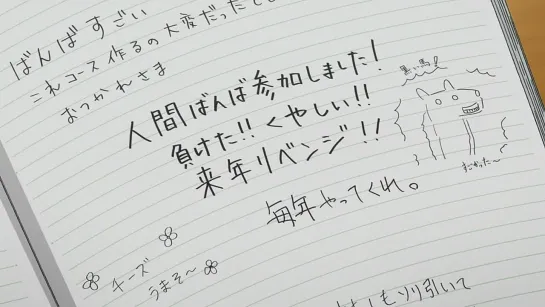 ばんばすごい
これコース作るの大変だったでし
おつかれさま
人間ばんば参加しました!
負けた!! くやしい!!
来年リベンジ!!
毎年やってくれ。
黒い馬!
でかった〜
チーズ
うまそ〜
もソリ引いて